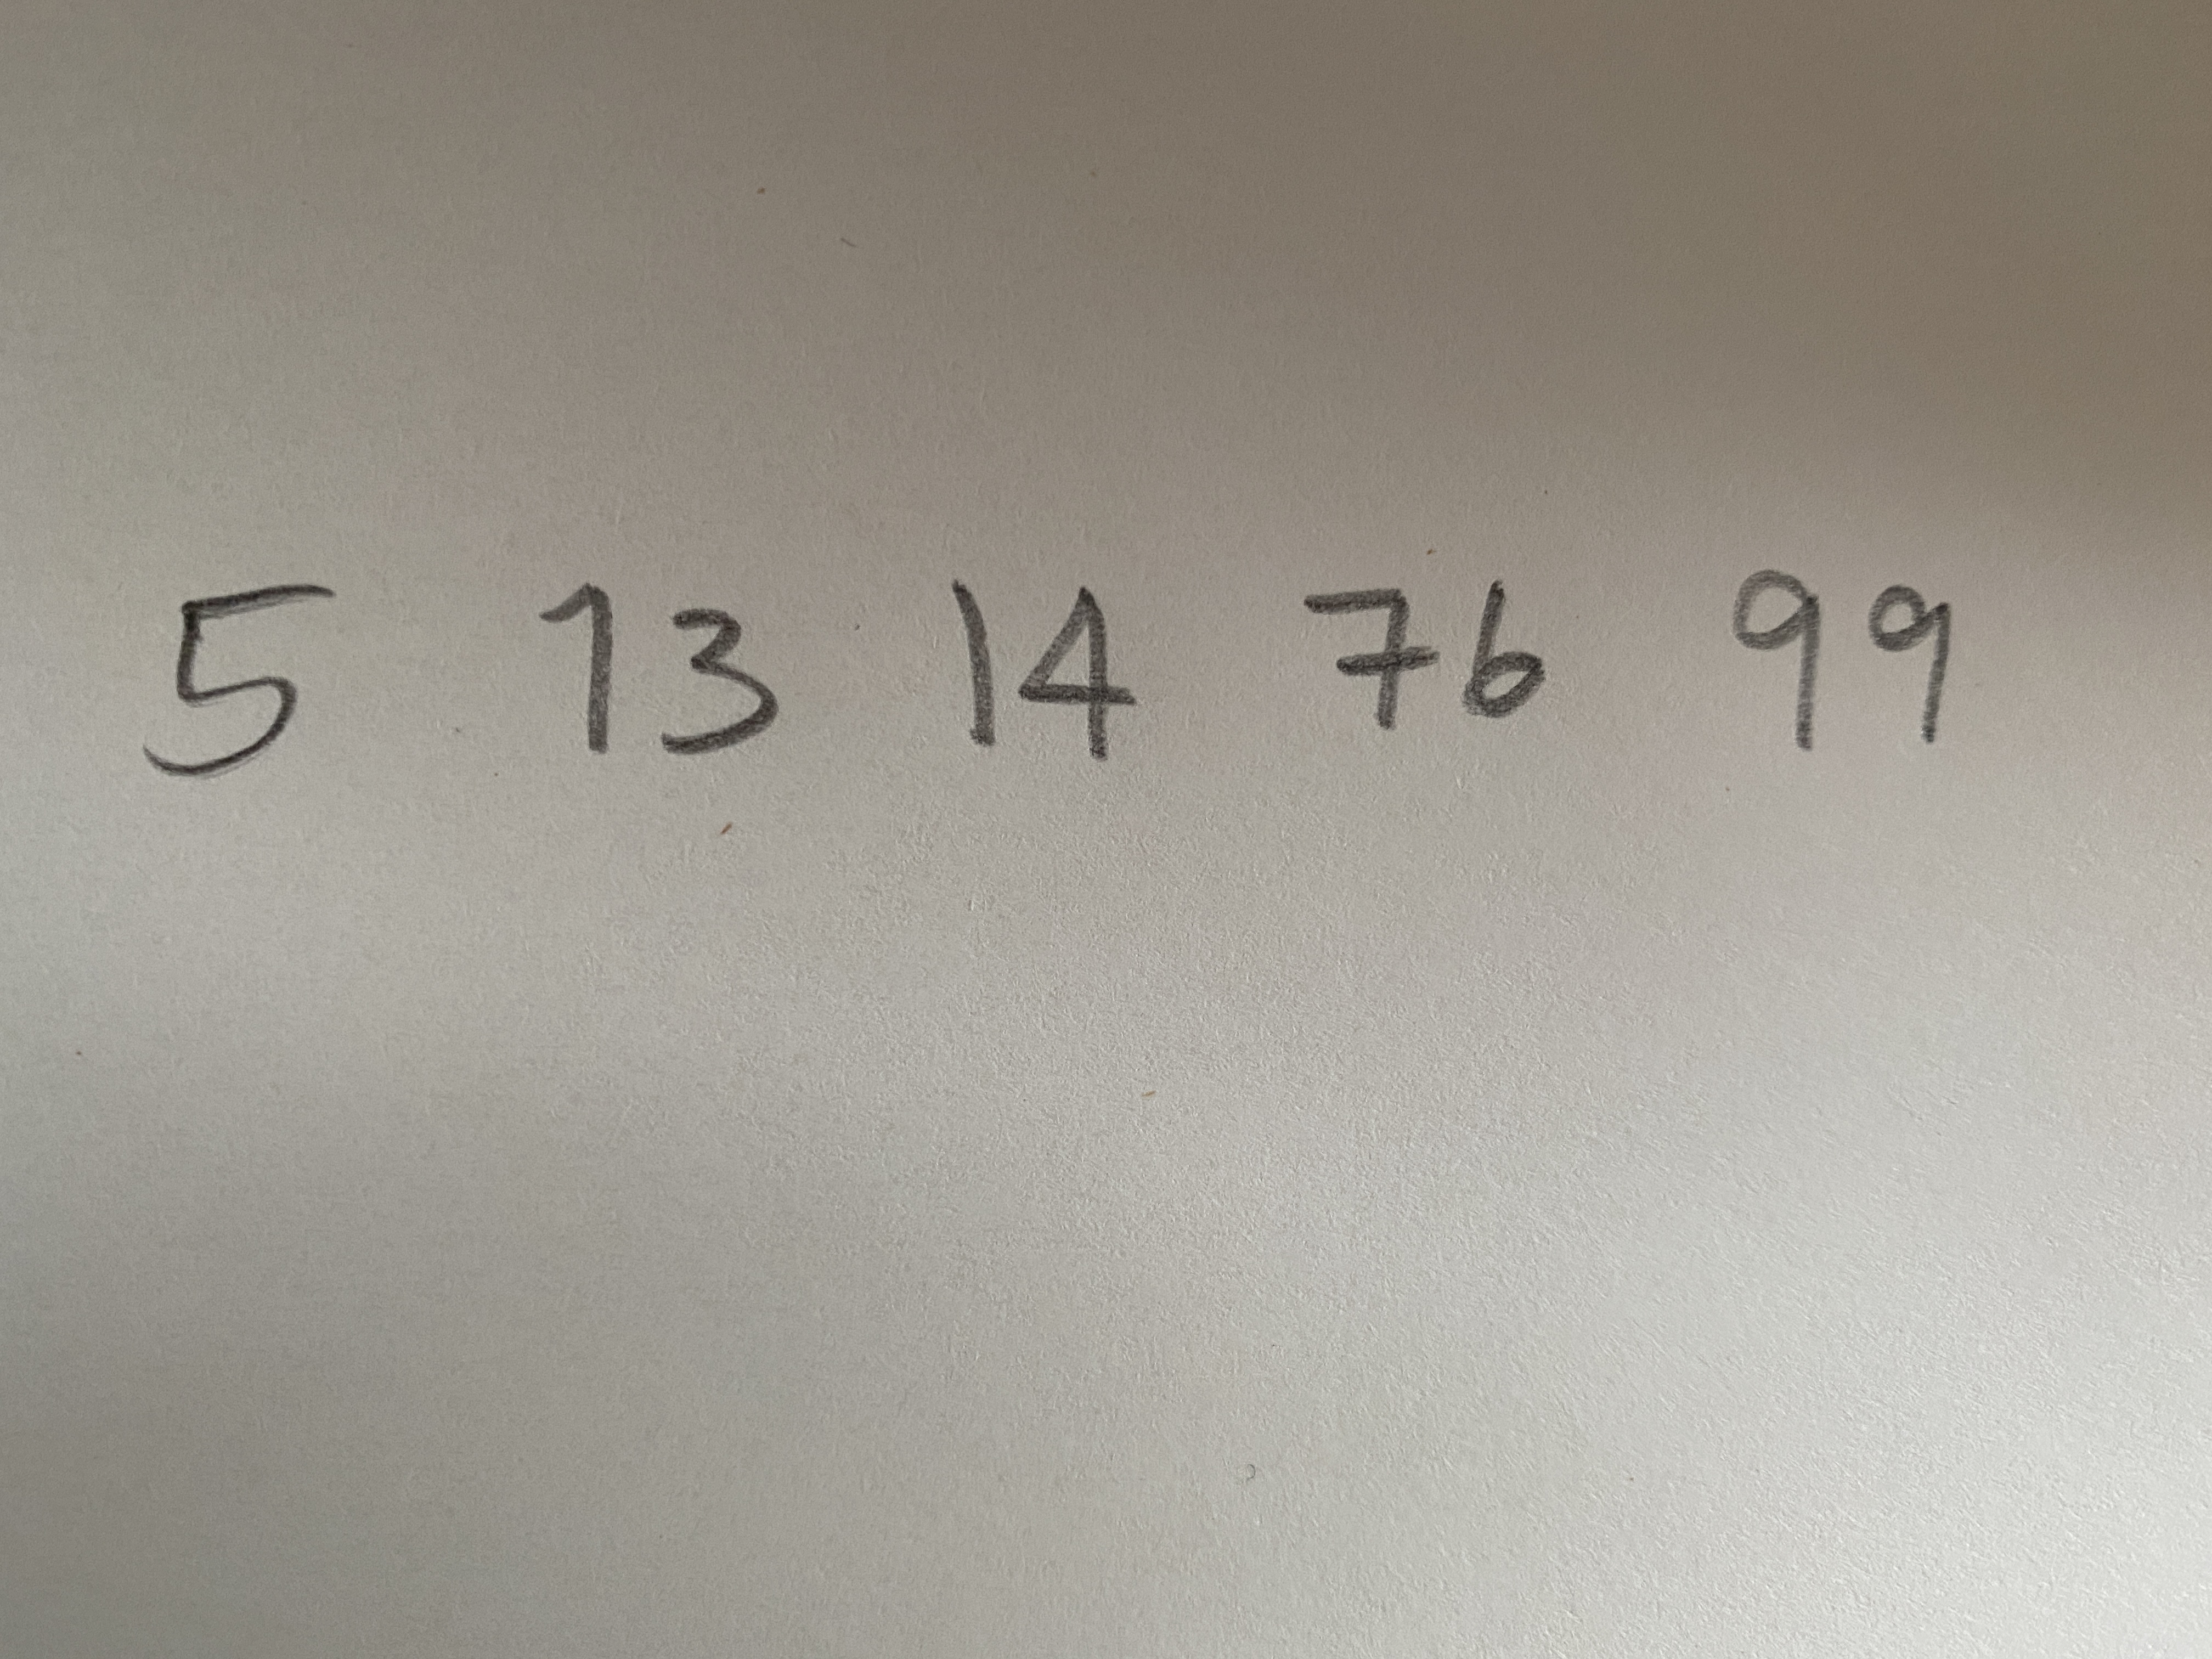 5 13 14 76 99